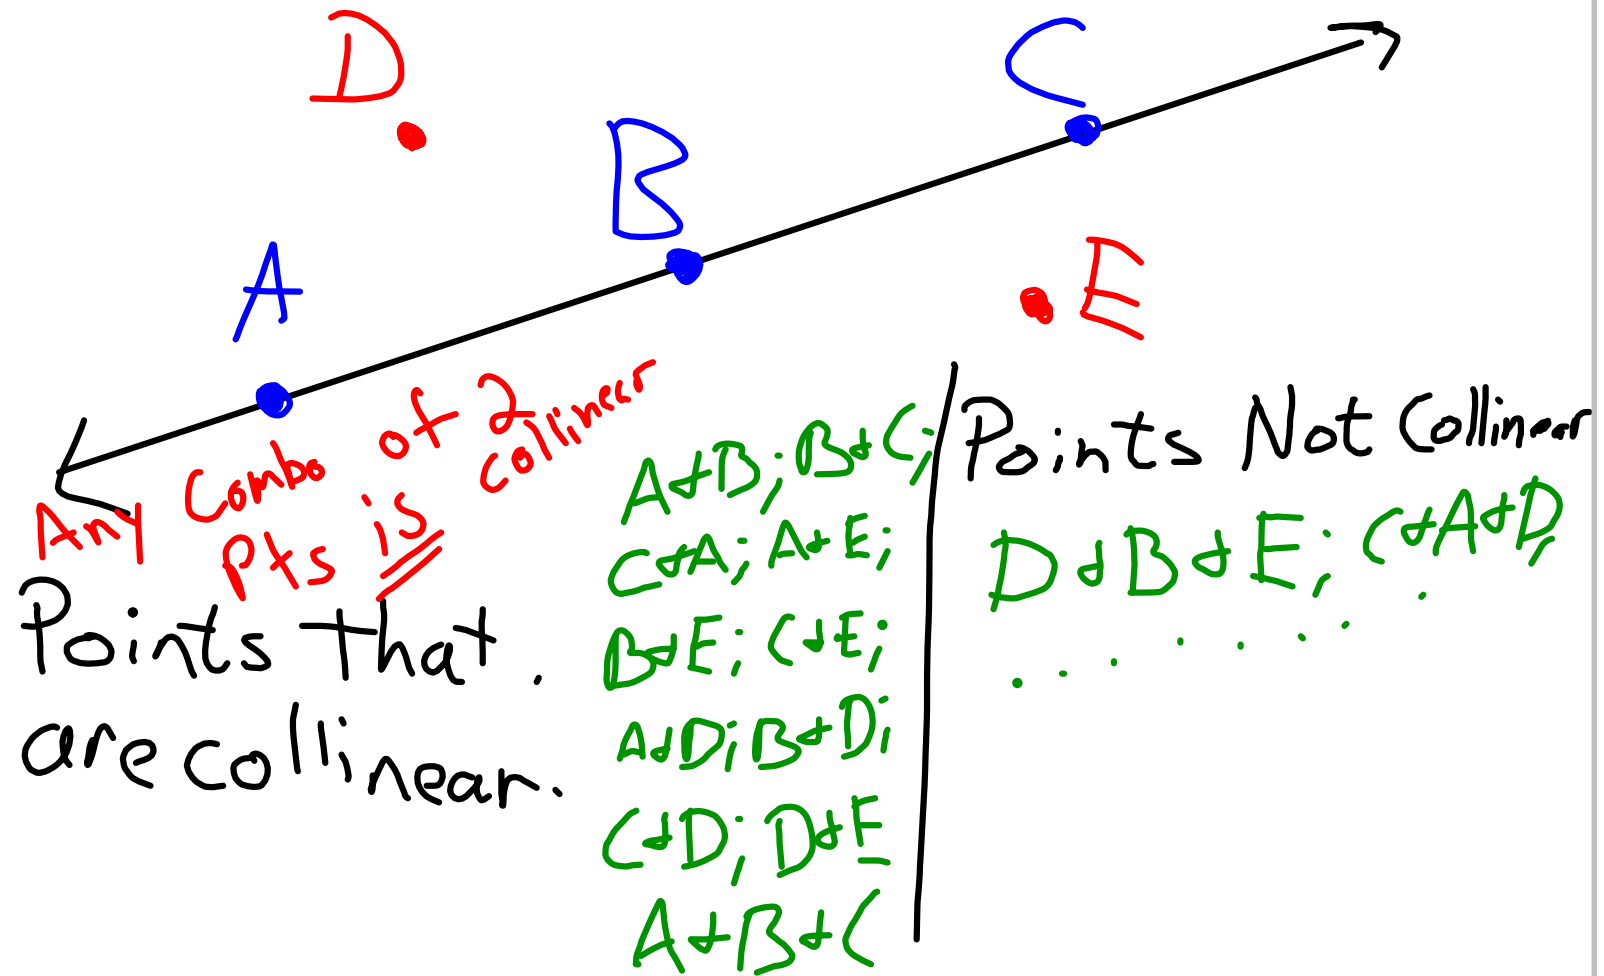 D
C
B
A
E
Any Combo of 2 collinear
pts is
Points that
are collinear.
A & B; B & C;
C & A; A & E;
B & E; C & E;
A & D; B & D;
C & D; D & E
A & B & C
Points Not Collinear
D & B & E; C & A & D;
. . . . . . . .